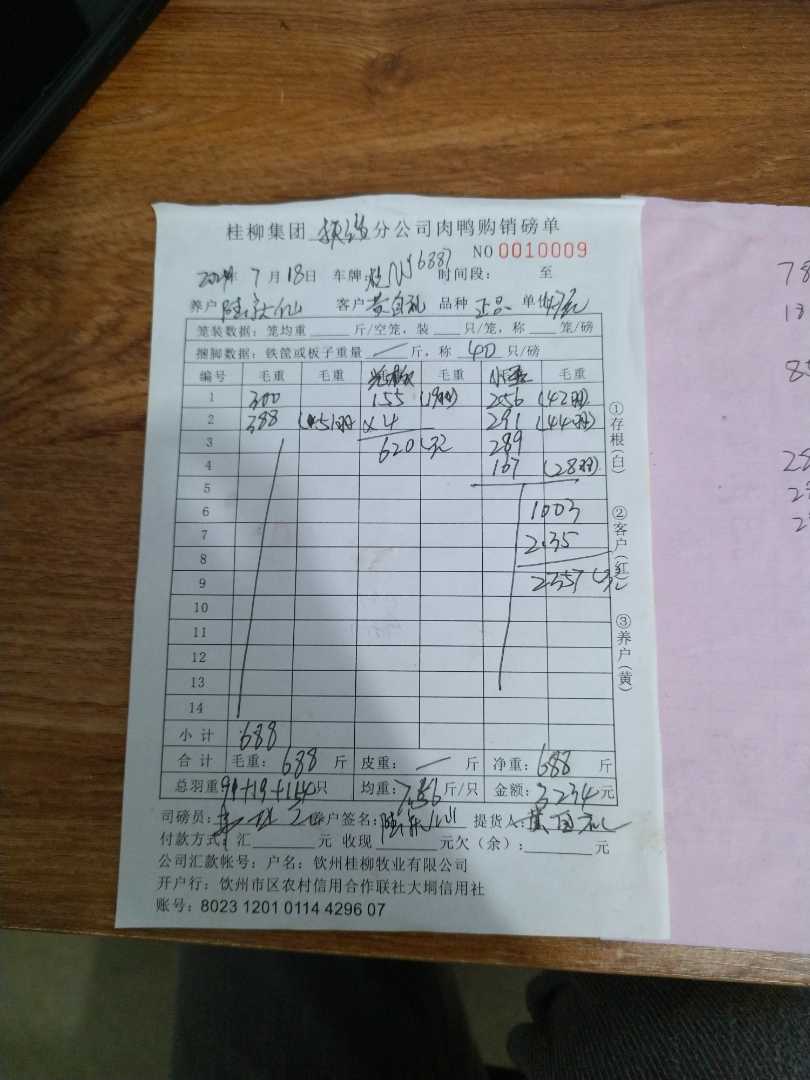 桂柳集团 分公司肉鸭购销磅单
NO 0010009
7月18日 车牌: N16887 时间段: 至
养户 客户 黄自礼 品种 正品 单价
笼装数据: 笼均重 斤/空笼, 装 只/笼, 称 笼/磅
捆脚数据: 铁筐或板子重量 / 斤, 称 40 只/磅
编号 毛重 毛重 毛重 毛重
1 300 155 (19羽) 256 (42羽)
2 388 (51羽) ×4 291 (44羽)
3 620元 289
4 167 (28羽)
5
6 1003
7 2.35
8
9 2357元
10
11
12
13
14
小计 688
合计 毛重: 688 斤 皮重: / 斤 净重: 688 斤
总羽重 91+19+114只 均重: 7.56斤/只 金额: 3234元
司磅员: 养户签名: 提货人: 黄自礼
付款方式: 汇 元 收现 元欠(余): 元
公司汇款帐号: 户名: 钦州桂柳牧业有限公司
开户行: 钦州市区农村信用合作联社大垌信用社
账号: 8023 1201 0114 4296 07
①存根(白) ②客户(红) ③养户(黄)